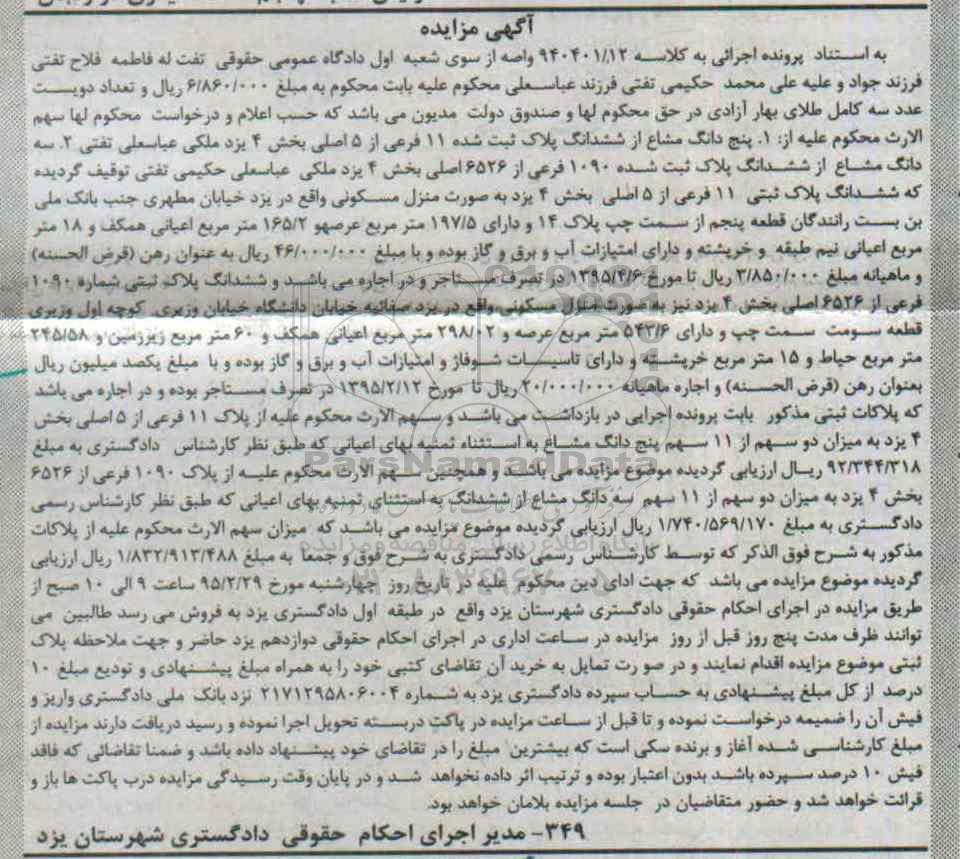 آگهی مزایده
به استناد پرونده اجرائی به کلاسه ۹۴۰۴۰۱/۱۲ واصه از سوی شعبه اول دادگاه عمومی حقوقی تفت له فاطمه فلاح تفتی
فرزند جواد و علیه علی محمد حکیمی تفتی فرزند عباسعلی محکوم علیه بابت محکوم به مبلغ ۶/۸۶۰/۰۰۰ ریال و تعداد دویست
عدد سه کامل طلای بهار آزادی در حق محکوم لها و صندوق دولت مدیون می باشد که حسب اعلام و درخواست محکوم لها سهم
الارث محکوم علیه از: ۱. پنج دانگ مشاع از ششدانگ پلاک ثبت شده ۱۱ فرعی از ۵ اصلی بخش ۴ یزد ملکی عباسعلی تفتی ۲. سه
دانگ مشاع از ششدانگ پلاک ثبت شده ۱۰۹۰ فرعی از ۶۵۲۶ اصلی بخش ۴ یزد ملکی عباسعلی حکیمی تفتی توقیف گردیده
که ششدانگ پلاک ثبتی ۱۱ فرعی از ۵ اصلی بخش ۴ یزد به صورت منزل مسکونی واقع در یزد خیابان مطهری جنب بانک ملی
بن بست رانندگان قطعه پنجم از سمت چپ پلاک ۱۴ و دارای ۱۹۷/۵ متر مربع عرصهو ۱۶۵/۲ متر مربع اعیانی همکف و ۱۸ متر
مربع اعیانی نیم طبقه و خرپشته و دارای امتیازات آب و برق و گاز بوده و با مبلغ ۴۶/۰۰۰/۰۰۰ ریال به عنوان رهن (قرض الحسنه)
و ماهیانه مبلغ ۳/۸۵۰/۰۰۰ ریال تا مورخ ۱۳۹۵/۴/۶ در تصرف مستاجر و در اجاره می باشد و ششدانگ پلاک ثبتی شماره ۱۰۹۰
فرعی از ۶۵۲۶ اصلی بخش ۴ یزد نیز به صورت منزل مسکونی واقع در یزد صفائیه خیابان دانشگاه خیابان وزیری کوچه اول وزیری
قطعه سومت سمت چپ و دارای ۵۴۳/۶ متر مربع عرصه و ۲۹۸/۰۲ متر مربع اعیانی همکف و ۶۰ متر مربع زیرزمین و ۲۴۵/۵۸
متر مربع حیاط و ۱۵ متر مربع خرپشته و دارای تاسیسات شوفاژ و امتیازات آب و برق و گاز بوده و با مبلغ یکصد میلیون ریال
بعنوان رهن (قرض الحسنه) و اجاره ماهیانه ۲۰/۰۰۰/۰۰۰ ریال تا مورخ ۱۳۹۵/۲/۱۲ در تصرف مستاجر بوده و در اجاره می باشد
که پلاکات ثبتی مذکور بابت پرونده اجرایی در بازداشت می باشد و سهم الارث محکوم علیه از پلاک ۱۱ فرعی از ۵ اصلی بخش
۴ یزد به میزان دو سهم از ۱۱ سهم پنج دانگ مشاع به استثناء ثمنیه بهای اعیانی که طبق نظر کارشناس دادگستری به مبلغ
۹۲/۳۴۴/۳۱۸ ریال ارزیابی گردیده موضوع مزایده می باشد و همچنین سهم الارث محکوم علیه از پلاک ۱۰۹۰ فرعی از ۶۵۲۶
بخش ۴ یزد به میزان دو سهم از ۱۱ سهم سه دانگ مشاع از ششدانگ به استثنای ثمنیه بهای اعیانی که طبق نظر کارشناس رسمی
دادگستری به مبلغ ۱/۷۴۰/۵۶۹/۱۷۰ ریال ارزیابی گردیده موضوع مزایده می باشد که میزان سهم الارث محکوم علیه از پلاکات
مذکور به شرح فوق الذکر که توسط کارشناس رسمی دادگستری به شرح فوق و جمعا به مبلغ ۱/۸۳۲/۹۱۳/۴۸۸ ریال ارزیابی
گردیده موضوع مزایده می باشد که جهت ادای دین محکوم علیه در تاریخ روز چهارشنبه مورخ ۹۵/۲/۲۹ ساعت ۹ الی ۱۰ صبح از
طریق مزایده در اجرای احکام حقوقی دادگستری شهرستان یزد واقع در طبقه اول دادگستری یزد به فروش می رسد طالبین می
توانند ظرف مدت پنج روز قبل از روز مزایده در ساعت اداری در اجرای احکام حقوقی دوازدهم یزد حاضر و جهت ملاحظه پلاک
ثبتی موضوع مزایده اقدام نمایند و در صورت تمایل به خرید آن تقاضای کتبی خود را به همراه مبلغ پیشنهادی و تودیع مبلغ ۱۰
درصد از کل مبلغ پیشنهادی به حساب سپرده دادگستری یزد به شماره ۲۱۷۱۲۹۵۸۰۶۰۰۴ نزد بانک ملی دادگستری واریز و
فیش آن را ضمیمه درخواست نموده و تا قبل از ساعت مزایده در پاکت دربسته تحویل اجرا نموده و رسید دریافت دارند مزایده از
مبلغ کارشناسی شده آغاز و برنده سکی است که بیشترین مبلغ را در تقاضای خود پیشنهاد داده باشد و ضمنا تقاضائی که فاقد
فیش ۱۰ درصد سپرده باشد بدون اعتبار بوده و ترتیب اثر داده نخواهد شد و در پایان وقت رسیدگی مزایده درب پاکت ها باز و
قرائت خواهد شد و حضور متقاضیان در جلسه مزایده بلامان خواهد بود.
۳۴۹- مدیر اجرای احکام حقوقی دادگستری شهرستان یزد
ParsNamadData